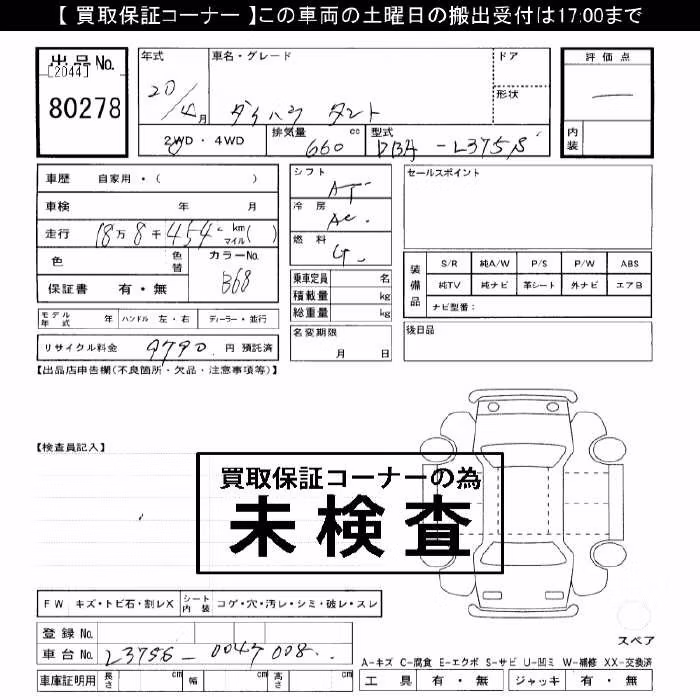 【 買取保証コーナー 】この車両の土曜日の搬出受付は17:00まで
出品No.
[2044]
80278
年式 車名・グレード ドア
20/4月 ダイハツ タント 形状
2WD・4WD 排気量 660 cc 型式 DBA-L375S
評価点
—
内装
車歴 自家用・( )
車検 年 月
走行 18万8千454 km マイル( )
色 色替 カラーNo. B68
保証書 有・無
シフト AT
冷房 AC
燃料 G
セールスポイント
装備品 S/R 純A/W P/S P/W ABS
純TV 純ナビ 革シート 外ナビ エアB
ナビ型番:
乗車定員 名
積載量 kg
総重量 kg
モデル年式 年 ハンドル 左・右 ディーラー・並行
名変期限 月 日
後日品
リサイクル料金 9790 円 預託済
【出品店申告欄(不良箇所・欠品・注意事項等)】
【検査員記入】
買取保証コーナーの為
未検査
FW キズ・トビ石・割レX シート内装 コゲ・穴・汚レ・シミ・破レ・スレ
登録No.
車台No. L375S-0047008
スペア
A-キズ C-腐食 E-エクボ S-サビ U-凹ミ W-補修 XX-交換済
車庫証明用 長さ cm 幅 cm 高さ cm
工具 有・無 ジャッキ 有・無